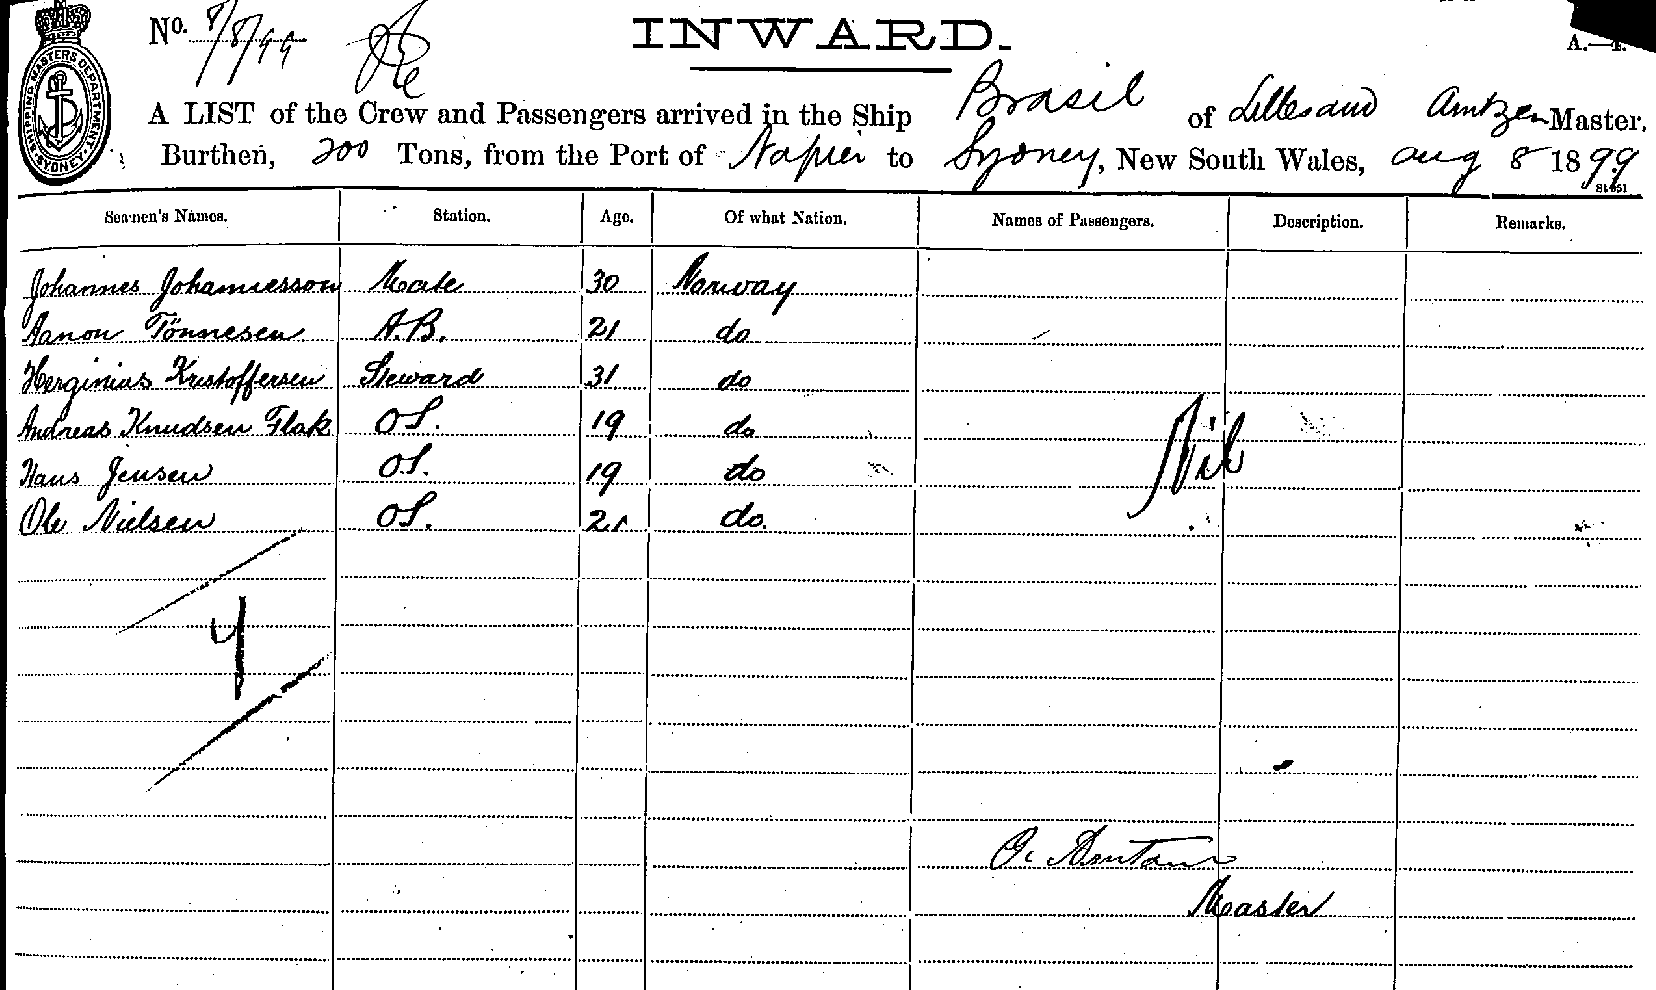 No. 8/8/99
INWARD.
SHIPPING MASTERS DEPARTMENT. SYDNEY.
A LIST of the Crew and Passengers arrived in the Ship Brasil of Lillesand Arntzen Master,
Burthen, 200 Tons, from the Port of Napier to Sydney, New South Wales, Aug 8 1899
Seamen's Names. Station. Age. Of what Nation. Names of Passengers. Description. Remarks.
Johannes Johannesson Mate 30 Norway
Aanon Tönnesen A.B. 21 do
Herginius Kristoffersen Steward 31 do
Andreas Knudsen Flak OS. 19 do
Hans Jensen OS. 19 do
Nil
Ole Nielsen OS. 21 do.
Master